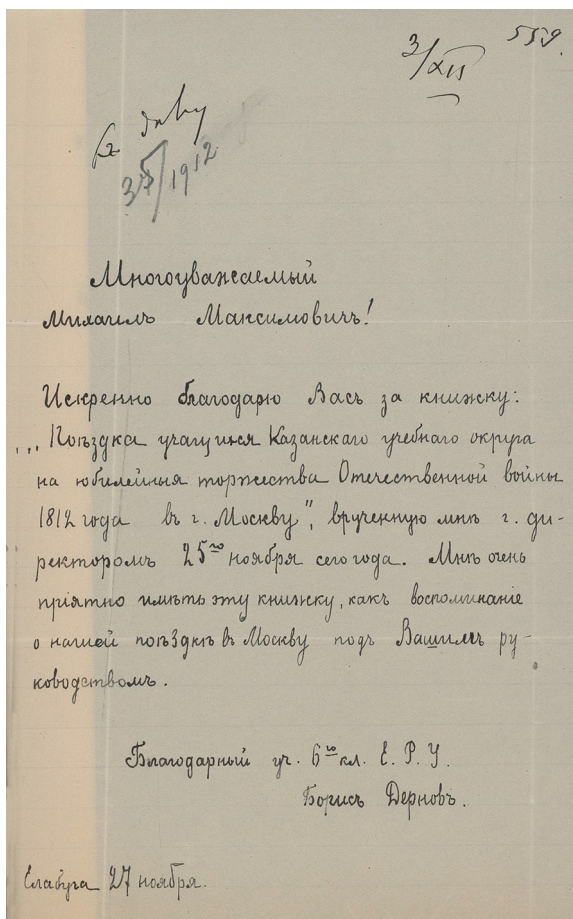 559.
3/XII
к делу
3/5/1912
Многоуважаемый
Михаилъ Максимовичъ!
Искренно благодарю Васъ за книжку:
„Поѣздка учащихся Казанскаго учебнаго округа
на юбилейныя торжества Отечественной войны
1812 года въ г. Москву", врученную мнѣ г. ди-
ректоромъ 25го ноября сего года. Мнѣ очень
пріятно имѣть эту книжку, какъ воспоминаніе
о нашей поѣздкѣ въ Москву подъ Вашимъ ру-
ководствомъ.
Благодарный уч. 6го кл. Е. Р. У.
Борисъ Дерновъ.
Елабуга 27 ноября.